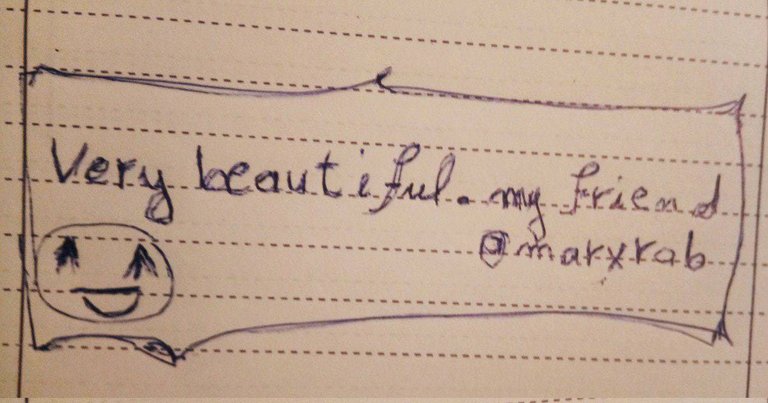 Very beautiful. my friend
@marxrab